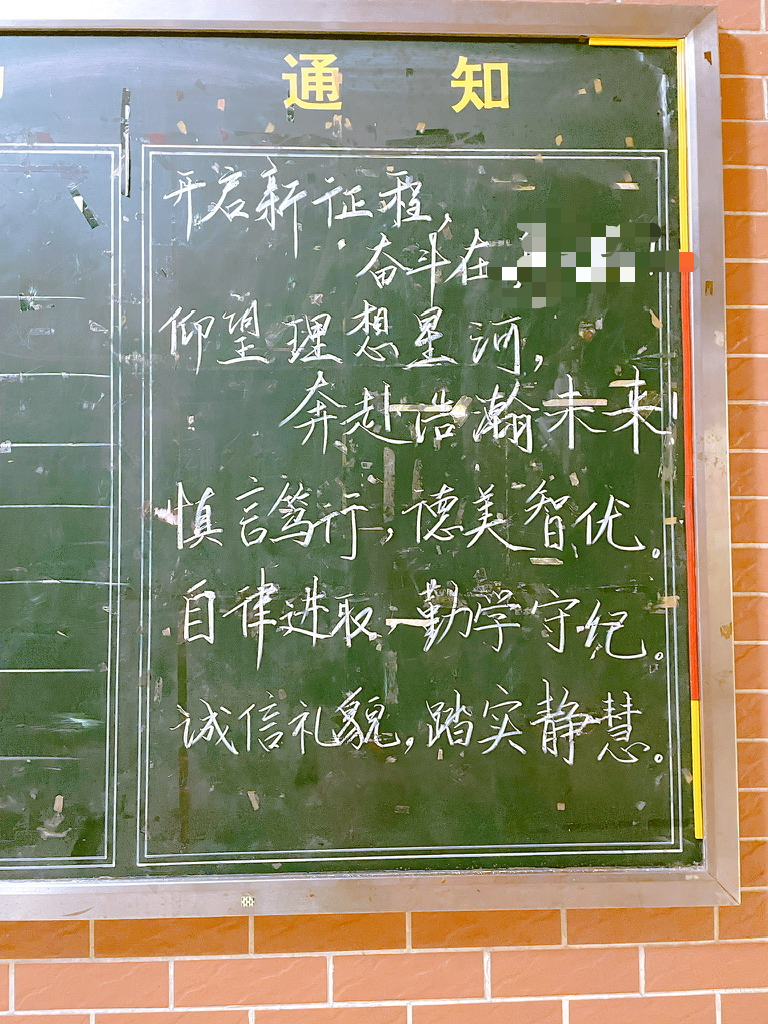 通知
开启新征程,
奋斗在
仰望理想星河,
奔赴浩瀚未来!
慎言笃行,德美智优。
自律进取,勤学守纪。
诚信礼貌,踏实静慧。